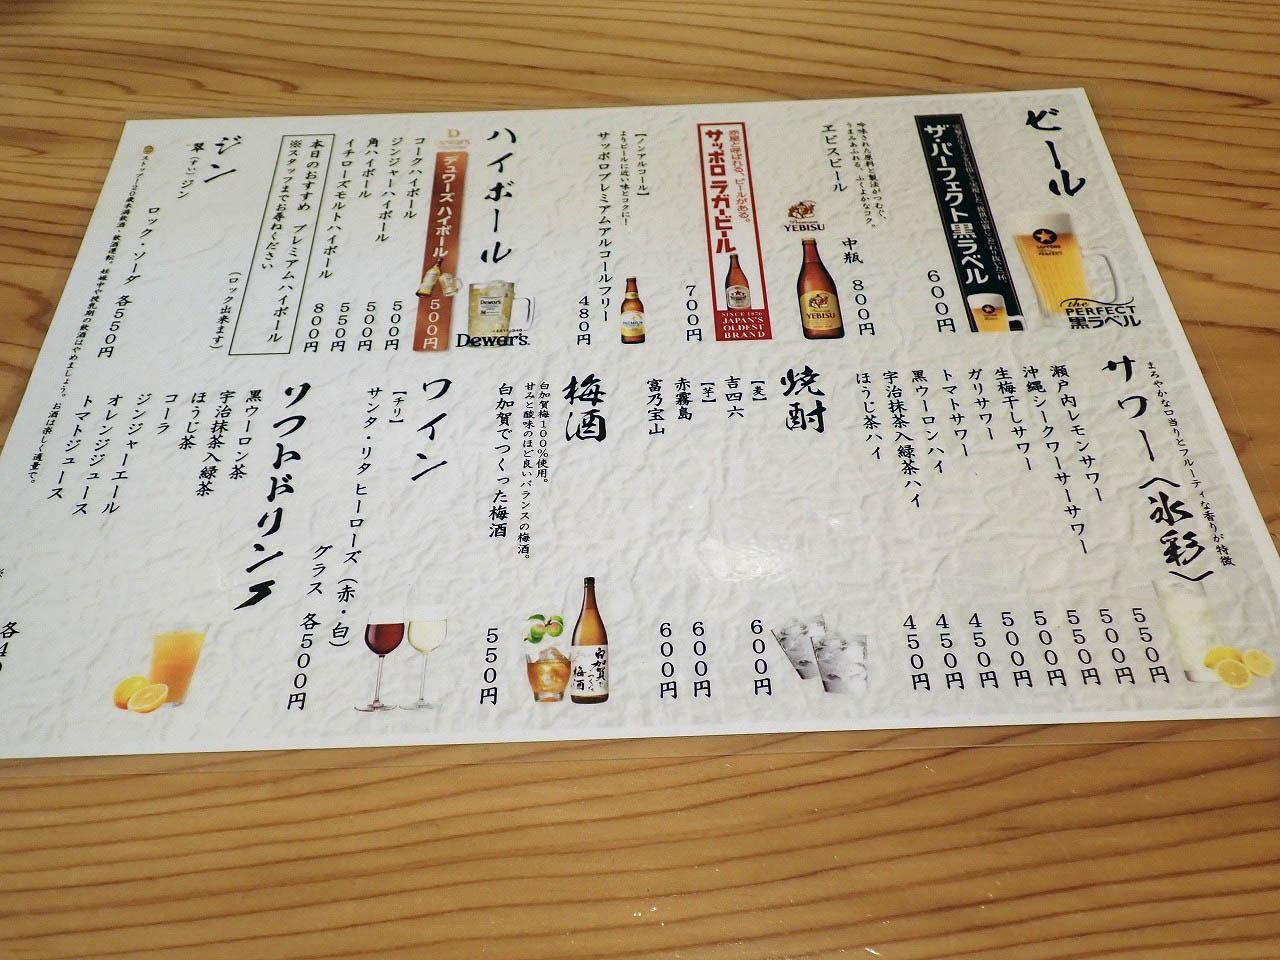 ビール
ザ・パーフェクト黒ラベル
600円
the PERFECT 黒ラベル
吟味された原料と製法がつむぐ、
うまみあふれる、ふくよかなコク。
ヱビスビール
中瓶 800円
Premium YEBISU
YEBISU
赤星と呼ばれる、ビールがある。
サッポロラガービール
SINCE 1876
JAPAN'S
OLDEST
BRAND
700円
【ノンアルコール】
よりビールに近い味とコクに！
サッポロプレミアムアルコールフリー
480円
ハイボール
Dewar's
デュワーズ ハイボール
500円
Dewar's.
コークハイボール
500円
ジンジャーハイボール
500円
角ハイボール
550円
イチローズモルトハイボール
800円
本日のおすすめ プレミアムハイボール
※スタッフまでお尋ねください
（ロック出来ます）
ジン
翠（すい）ジン
ロック・ソーダ 各550円
ストップ！20歳未満飲酒・飲酒運転。妊娠中や授乳期の飲酒はやめましょう。お酒は楽しく適量で。
サワー〈氷彩〉
まろやかな口当りとフルーティな香りが特徴
瀬戸内レモンサワー 550円
沖縄シークワーサーサワー 550円
生梅干しサワー 550円
ガリサワー 500円
トマトサワー 500円
黒ウーロンハイ 450円
宇治抹茶入緑茶ハイ 450円
ほうじ茶ハイ 450円
焼酎
【麦】
吉四六 600円
【芋】
赤霧島 600円
富乃宝山 600円
梅酒
白加賀梅100％使用。
甘みと酸味のほど良いバランスの梅酒。
白加賀でつくった梅酒 550円
ワイン
【チリ】
サンタ・リタ ヒーローズ（赤・白）
グラス 各500円
ソフトドリンク
黒ウーロン茶
宇治抹茶入緑茶
ほうじ茶
コーラ
ジンジャーエール
オレンジジュース
トマトジュース
各4